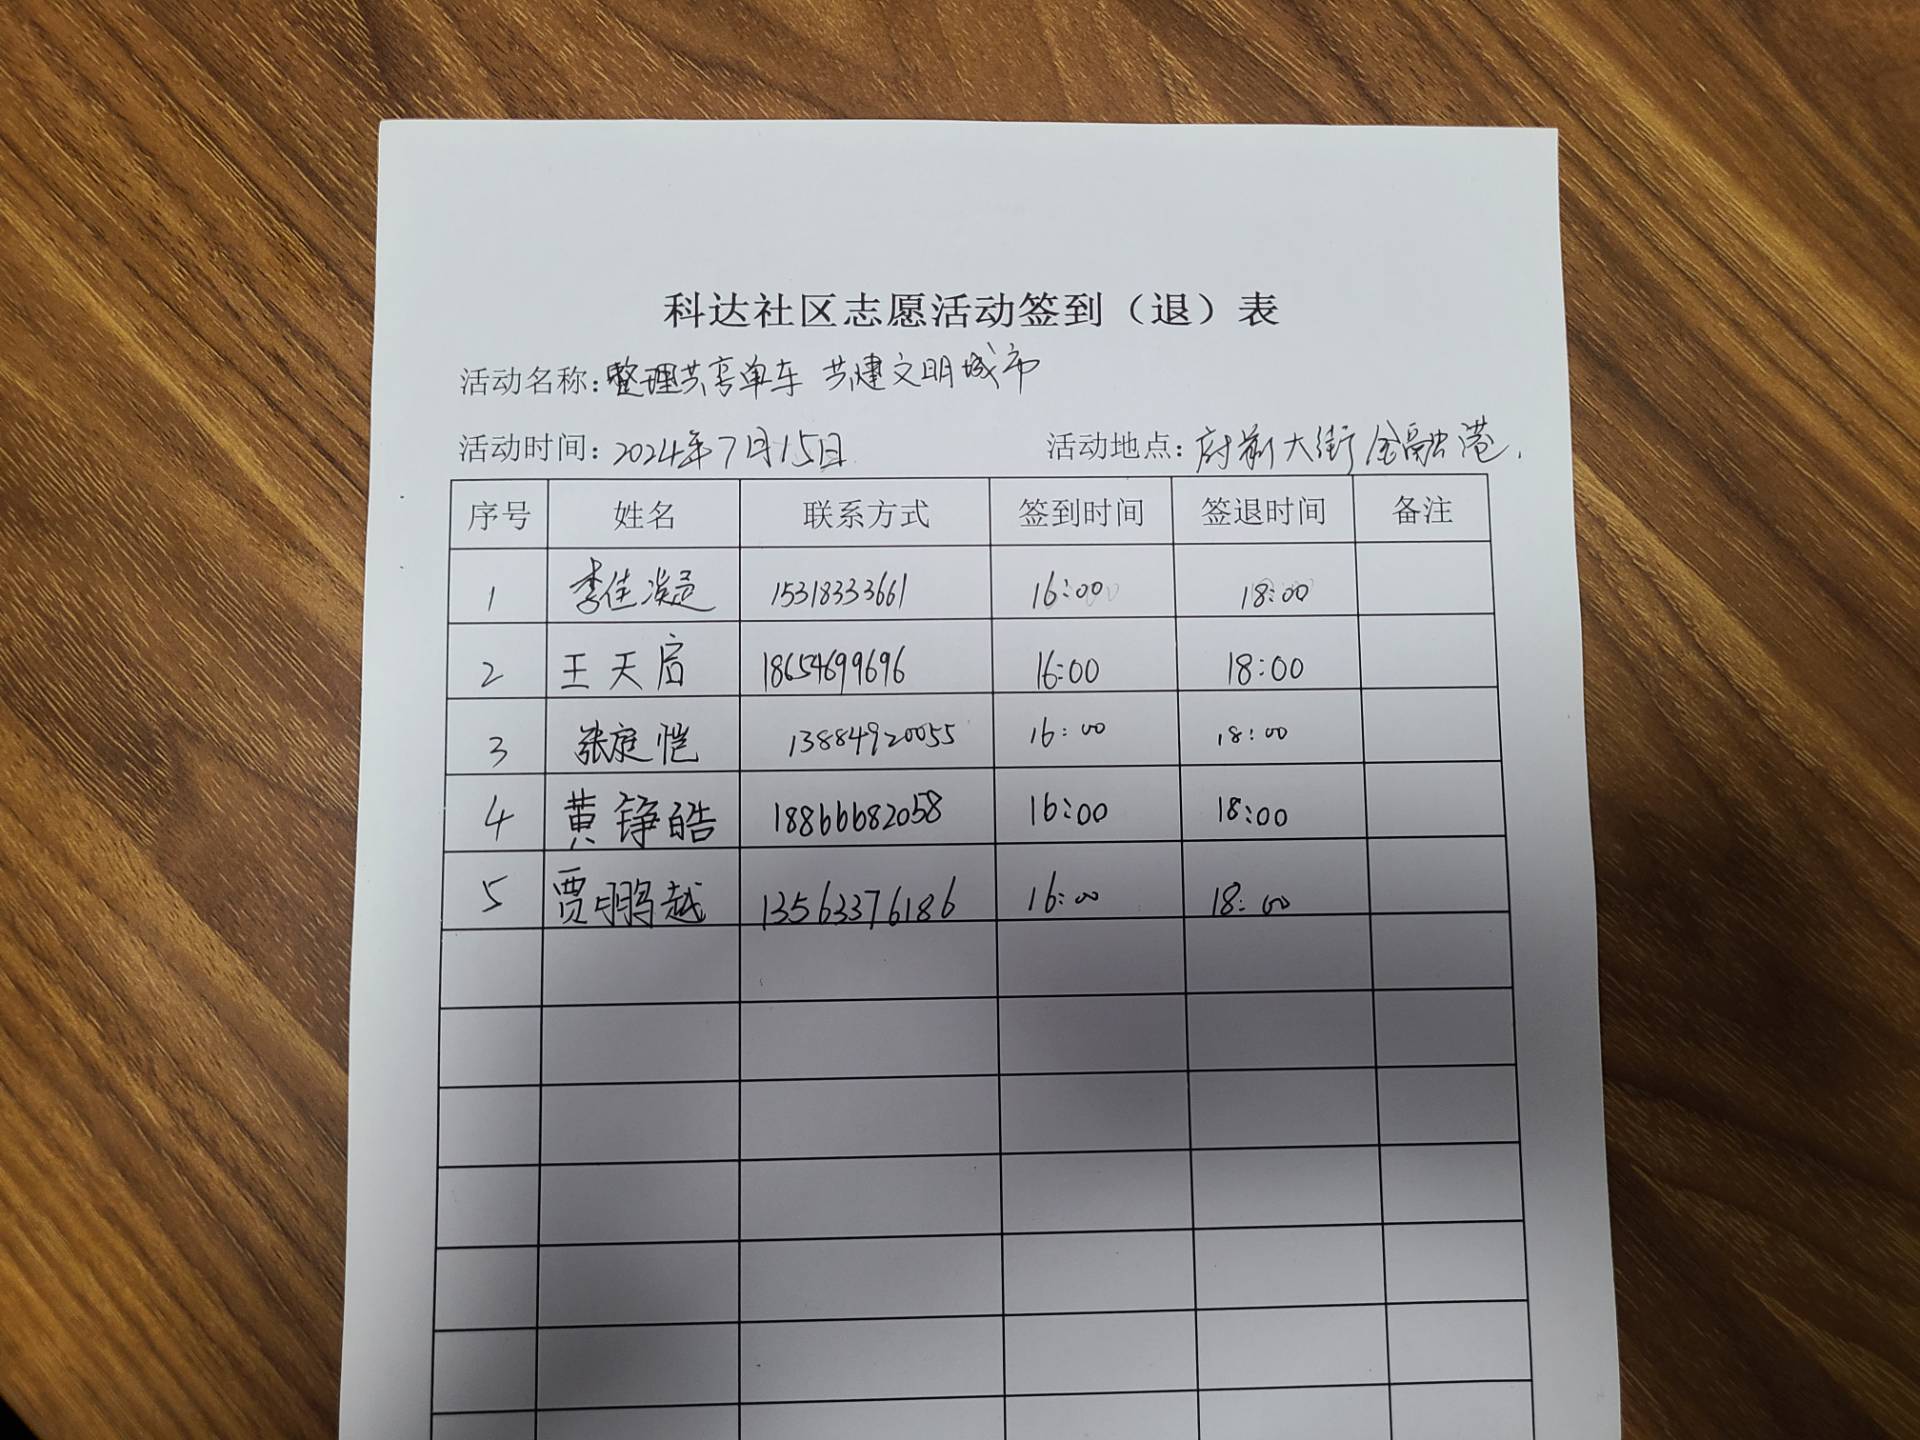 科达社区志愿活动签到（退）表
活动名称：整理共享单车 共建文明城市
活动时间：2024年7月15日 活动地点：府前大街金融港.
序号 姓名 联系方式 签到时间 签退时间 备注
1 李佳凝 15318333661 16:00 18:00
2 王天启 18654699696 16:00 18:00
3 张庭恺 13884920055 16:00 18:00
4 黄铮皓 18866682058 16:00 18:00
5 贾鹏越 13563376186 16:00 18:00